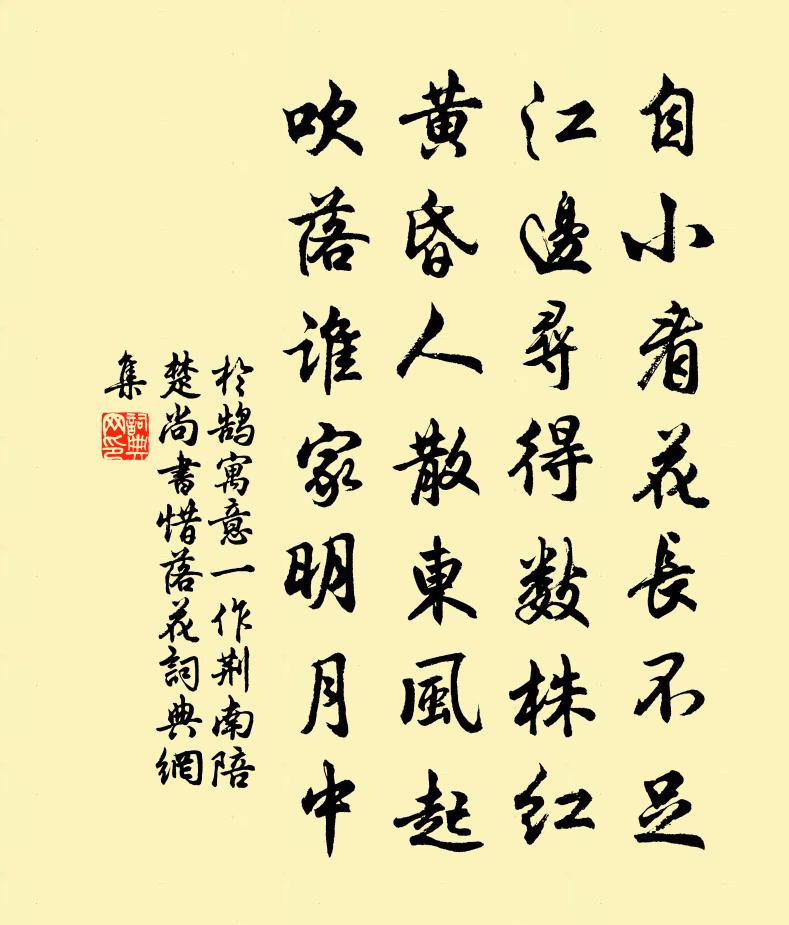 自小看花長不足
江邊尋得數株紅
黄昏人散東風起
吹落誰家明月中
於鵠寓意一作荆南陪
楚尚書惜落花詞典網
集
詞典
网印